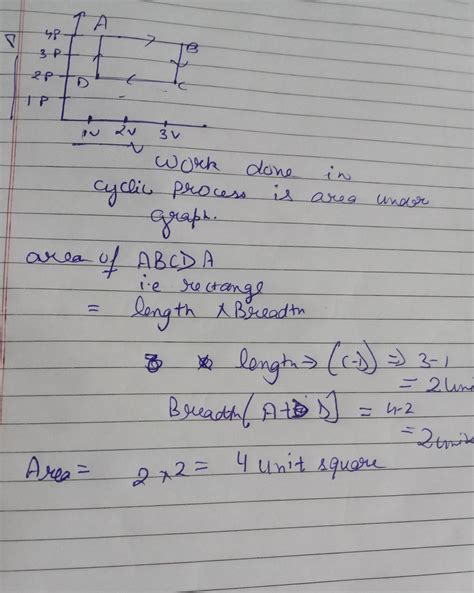 A
4P
B
3P
P
2P
D
C
1P
1V 2V 3V
V
Work done in
cyclic process is area under
graph.
area of ABCDA
i.e rectange
= length × Breadth
length ⇒ (C-D) ⇒ 3-1
= 2 uni
Breadth [A to D] = 4-2
= 2 units
Area = 2 × 2 = 4 unit square